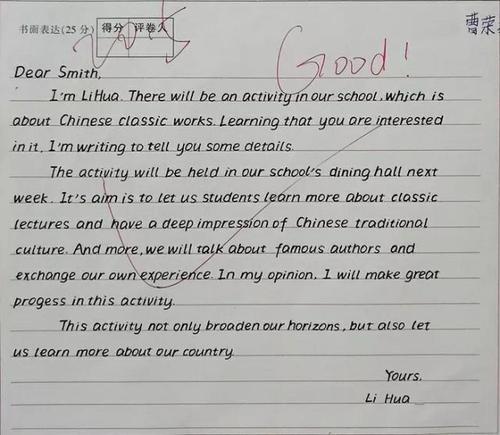 书面表达(25分) 得分 评卷人
曹荣
Good!
Dear Smith,
I'm LiHua. There will be an activity in our school, which is
about Chinese classic works. Learning that you are interested
in it, I'm writing to tell you some details.
The activity will be held in our school's dining hall next
week. It's aim is to let us students learn more about classic
lectures and have a deep impression of Chinese traditional
culture. And more, we will talk about famous authors and
exchange our own experience. In my opinion, I will make great
progess in this activity.
This activity not only broaden our horizons, but also let
us learn more about our country.
Yours,
Li Hua